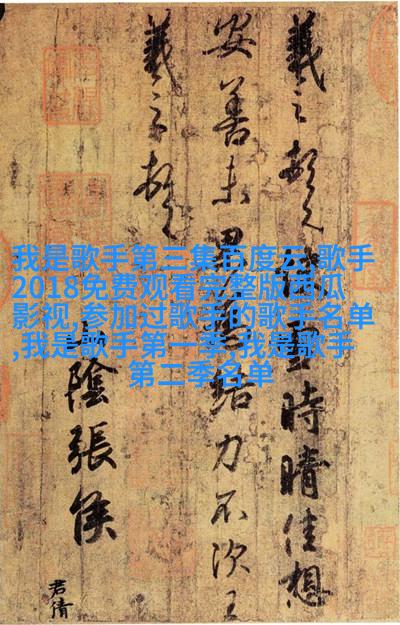 我是歌手第三集百度云,歌手
2018免费观看完整版西瓜
影视,参加过歌手的歌手名单
,我是歌手第一季,我是歌手
第二季名单
羲之頓首雪時晴佳想
安善未果結力不次王
羲之頓首
山陰張侯
君倩